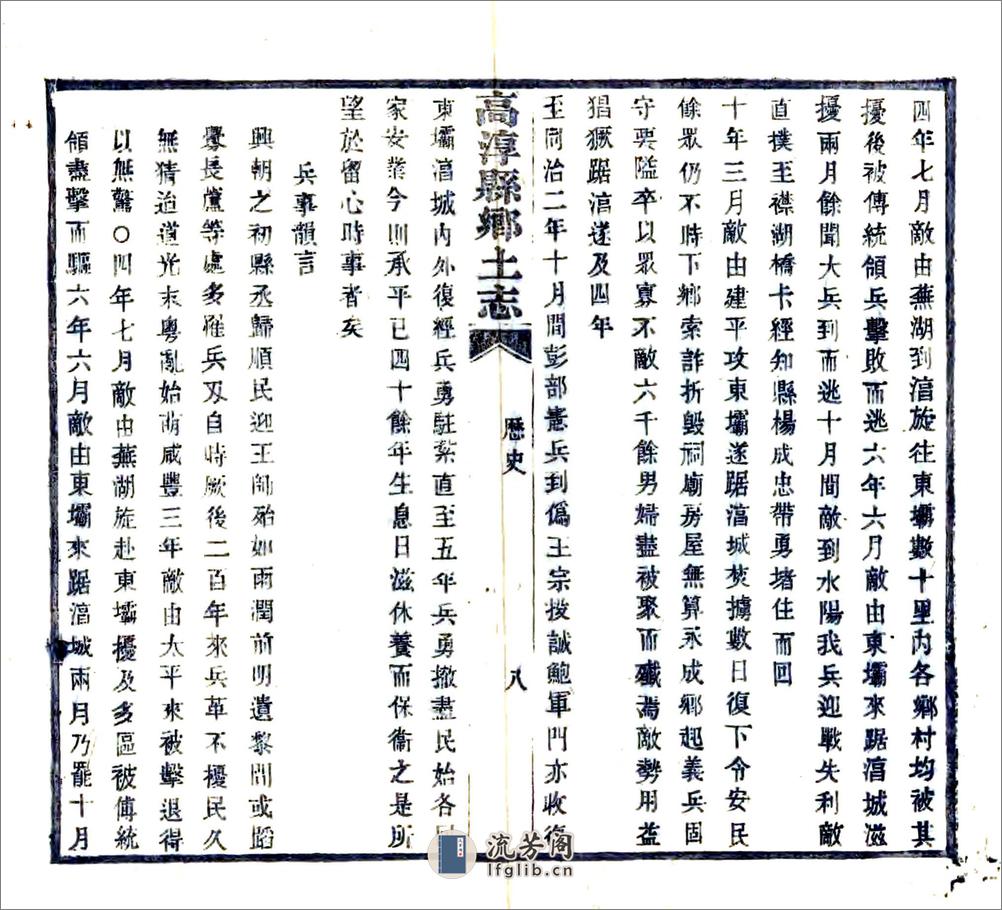 四年七月敵由蕪湖到淳旋往東壩數十里內各鄉村均被其
擾後被傅統領兵擊敗而逃六年六月敵由東壩來踞淳城滋
擾兩月餘聞大兵到而逃十月間敵到水陽我兵迎戰失利敵
直撲至襟湖橋卡經知縣楊成忠帶勇堵住而回
十年三月敵由建平攻東壩遂踞淳城焚擄數日復下令安民
餘眾仍不時下鄉索詐折毀祠廟房屋無算永成鄉起義兵固
守要隘卒以眾寡不敵六千餘男婦盡被聚而殲焉敵勢用益
猖獗踞淳遂及四年
至同治二年十月間彭部憲兵到偽王宗投誠鮑軍門亦收復
高淳縣鄉土志
歷史
八
東壩淳城內外復經兵勇駐紮直至五年兵勇撤盡民始各回
家安業今則承平已四十餘年生息日滋休養而保衛之是所
望於留心時事者矣
兵事韻言
興朝之初縣丞歸順民迎王師殆如雨潤前明遺黎間或蹈
釁長蘆等處多罹兵刃自時厥後二百年來兵革不擾民久
無猜迨道光末粵亂始萌咸豐三年敵由太平來被擊退得
以無驚〇四年七月敵由蕪湖旋赴東壩擾及多區被傅統
領盡擊而驅六年六月敵由東壩來踞淳城兩月乃罷十月
流芳閣
lfglib.cn